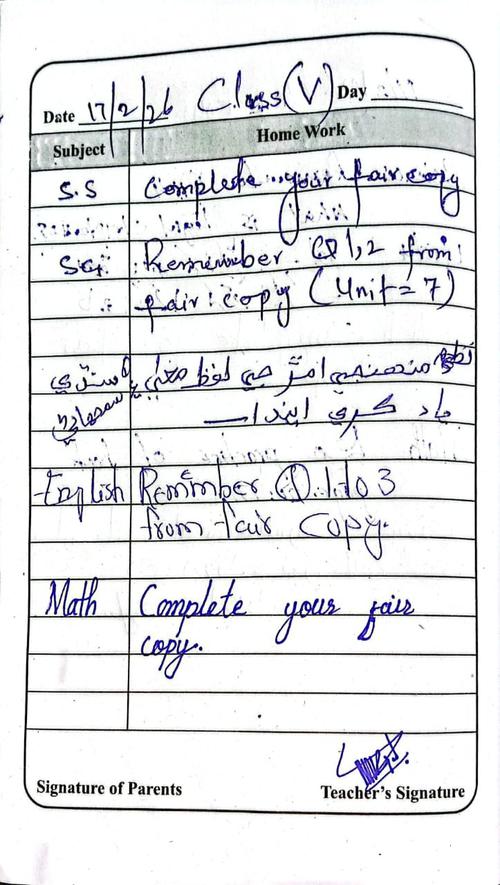 Date 17/2/26 Class (V) Day
Subject Home Work
S.S Complete your fair copy
Sci Remember Q 1,2 from
fair copy (Unit = 7)
سنڌي نظم منهنجي امڙ جي لفظ معنيٰ ۽
سمجهاڻي ياد ڪري ايندا
English Remember Q 1 to 3
from fair copy.
Math Complete your fair
copy.
Signature of Parents Teacher's Signature